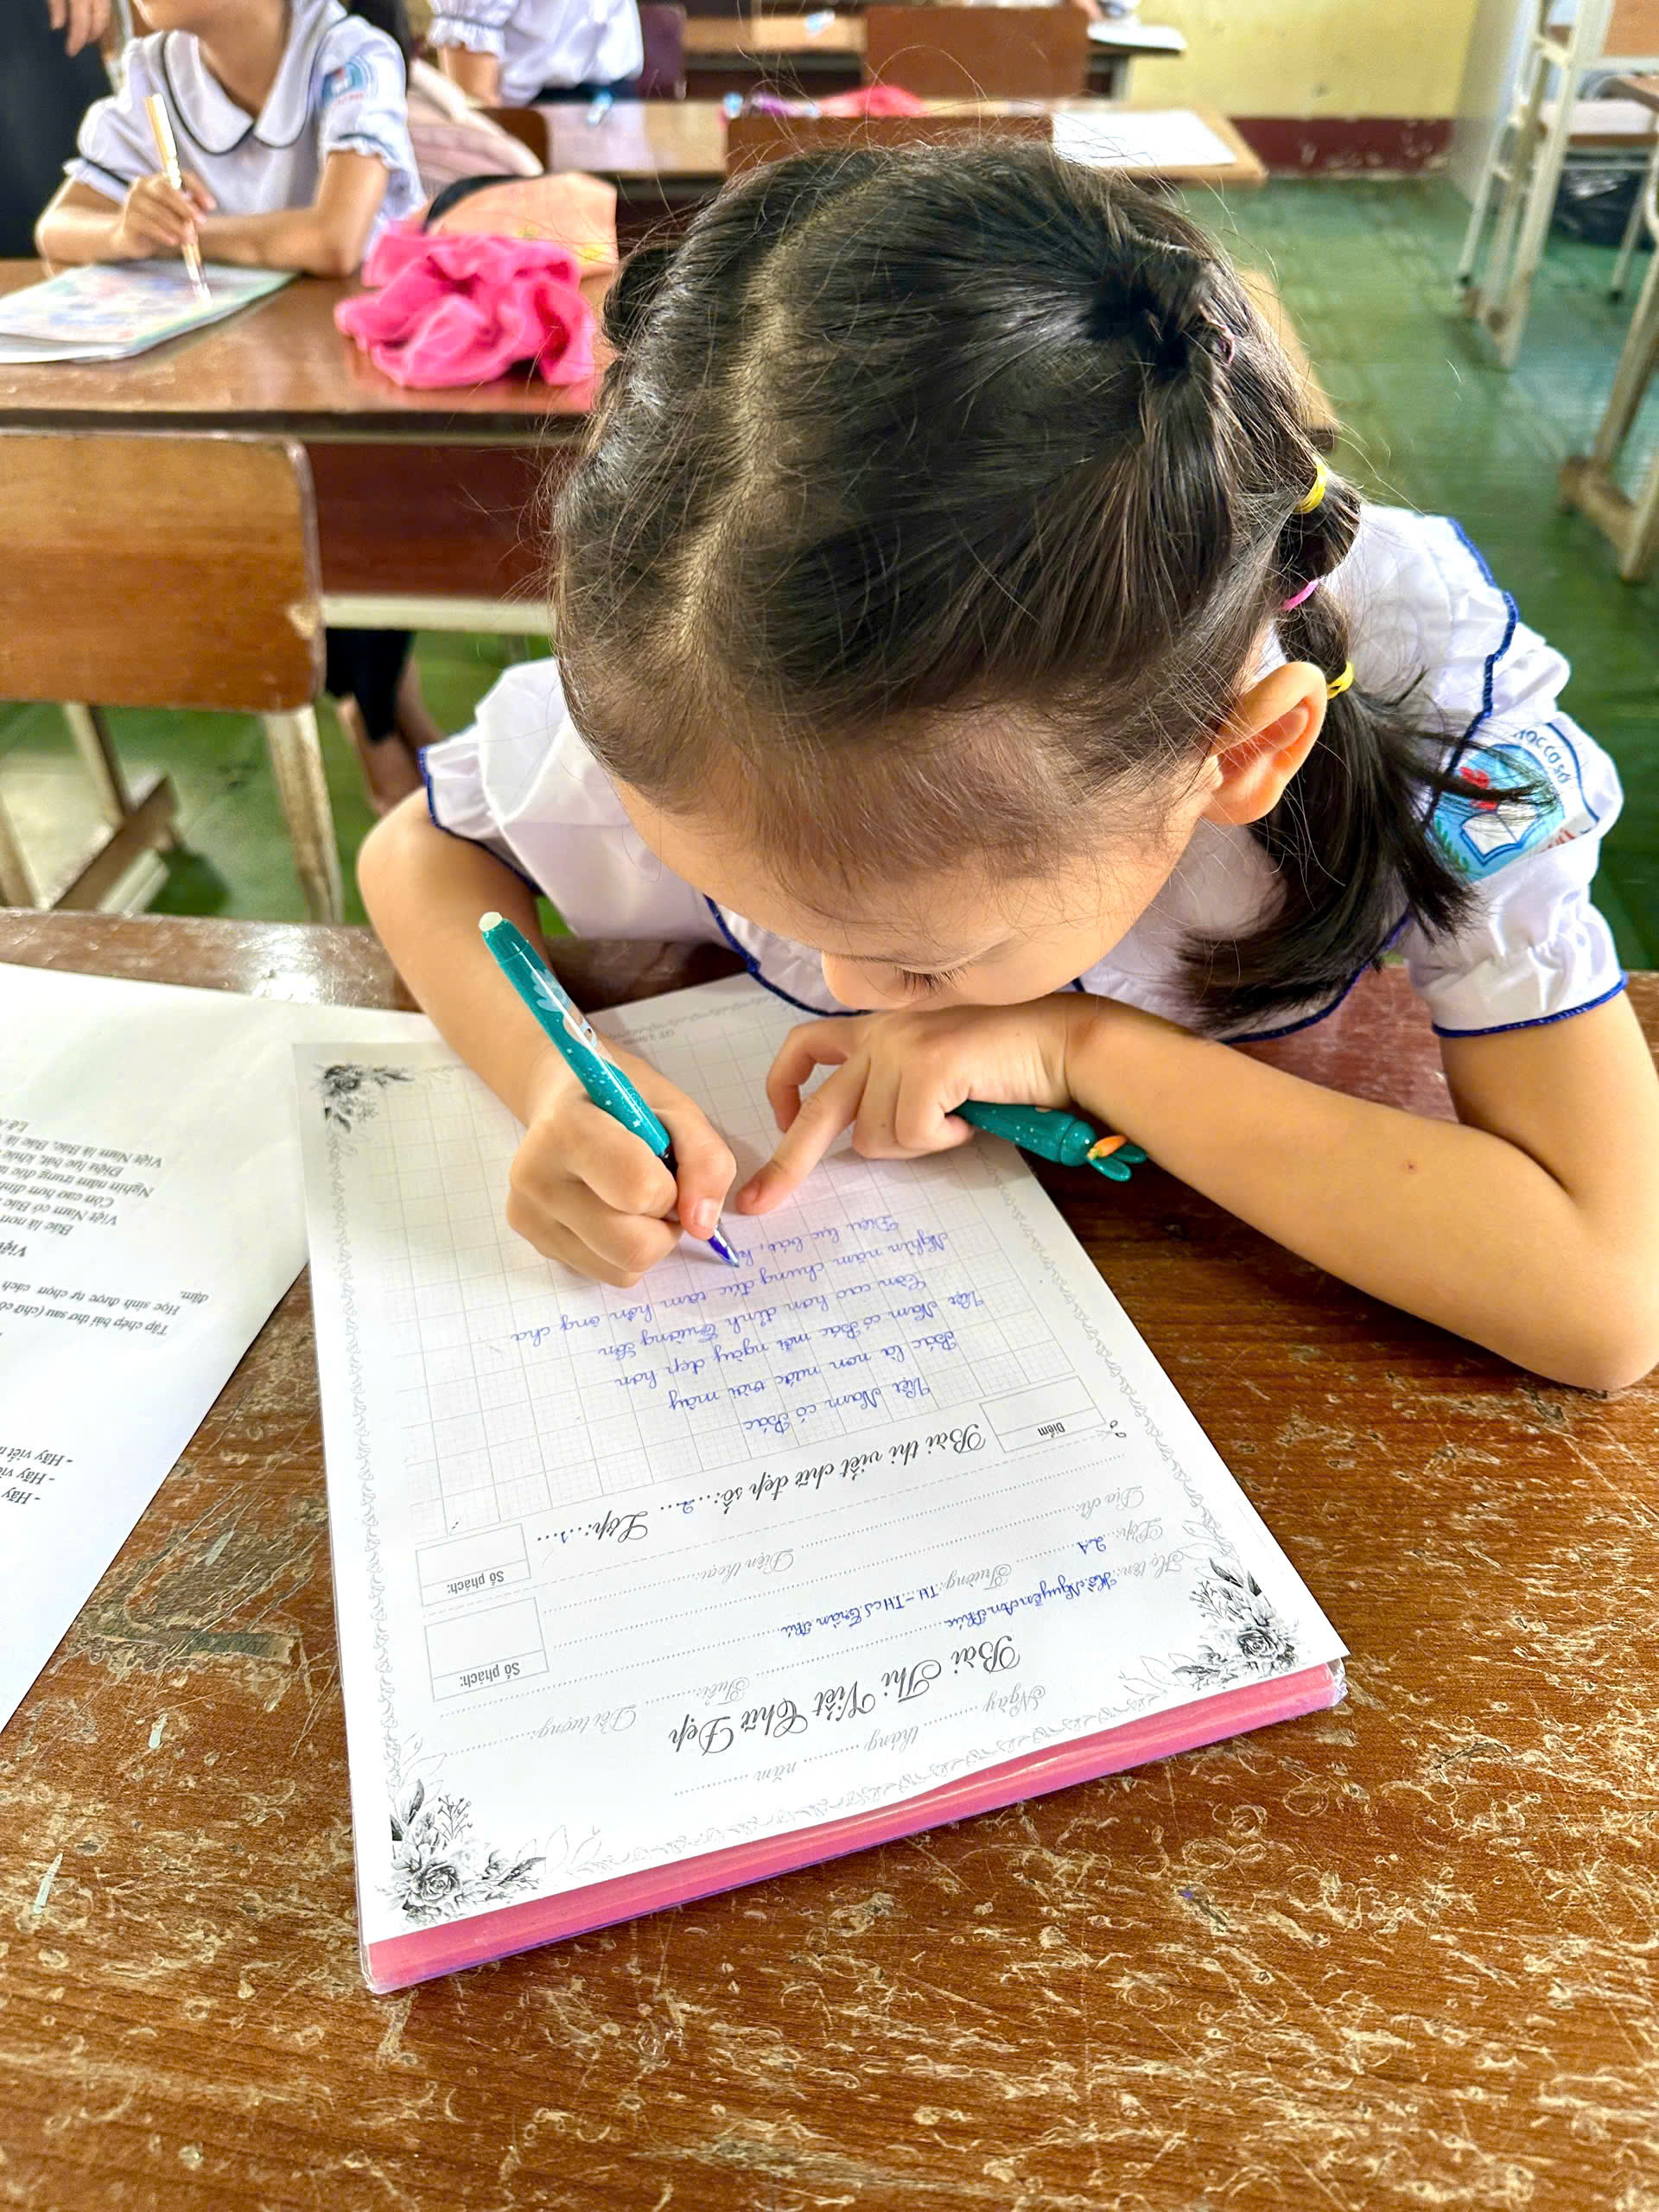 Ngày ........ tháng ........ năm ........
Bài Thi Viết Chữ Đẹp
Họ tên: Hồ Nguyễn An Thúc Tuổi: Đối tượng:
Lớp: 2A Trường: TH-THCS Trần Phú
Địa chỉ: Điện thoại:
Số phách:
Bài thi viết chữ đẹp số:...2... Lớp:...2...
Điểm
Số phách:
Việt Nam có Bác
Bác là non nước trời mây
Việt Nam có Bác mỗi ngày đẹp hơn
Còn cao hơn đỉnh Trường Sơn
Nghìn năm chung đúc tâm hồn ông cha
Điệu lục bát, k
- Hãy viết
- Hãy viế
- Hãy
Tập chép bài thơ sau (chữ cỡ
Học sinh được tự chọn cách
đậm.
Việt
Bác là non
Việt Nam có Bác
Còn cao hơn đỉnh
Nghìn năm trung đúc
Điệu lục bát, khúc
Việt Nam là Bác, Bác là
Lê A
HỌC CƠ SỞ